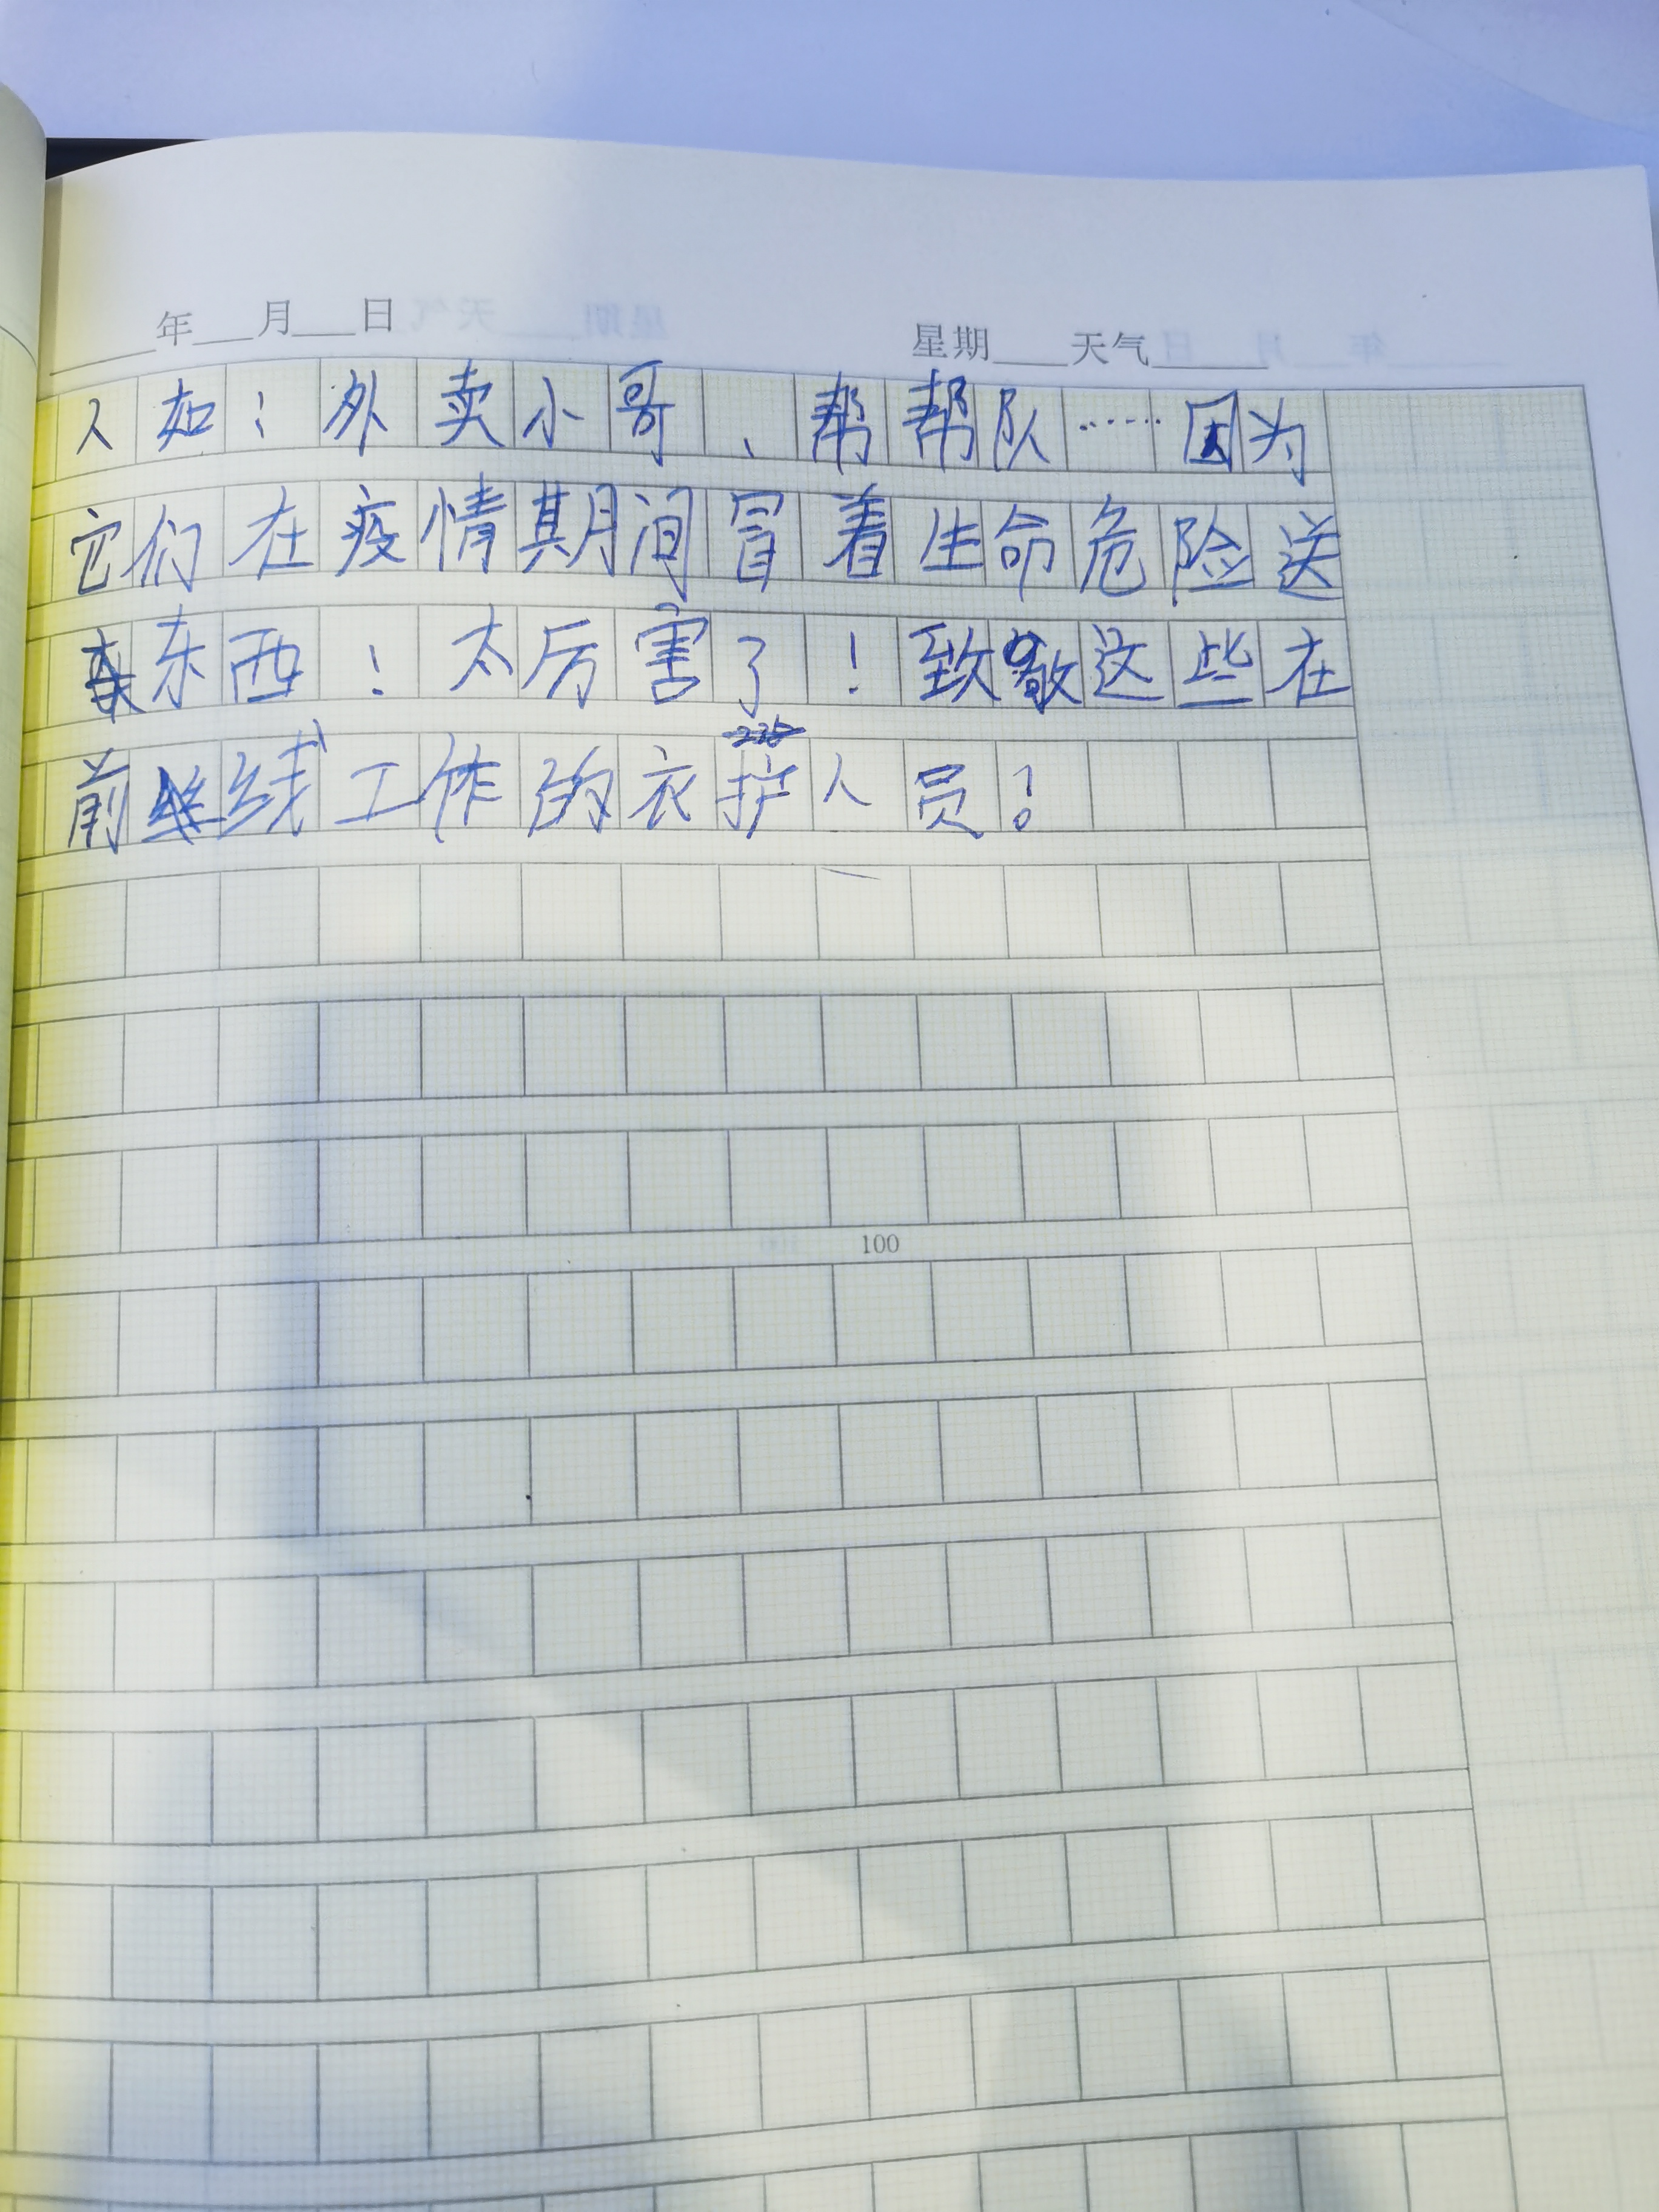 年 月 日 星期 天气
人如：外卖小哥、帮帮队……因为
它们在疫情期间冒着生命危险送
东西！太厉害了！致敬这些在
前线工作的衣护人员！
100